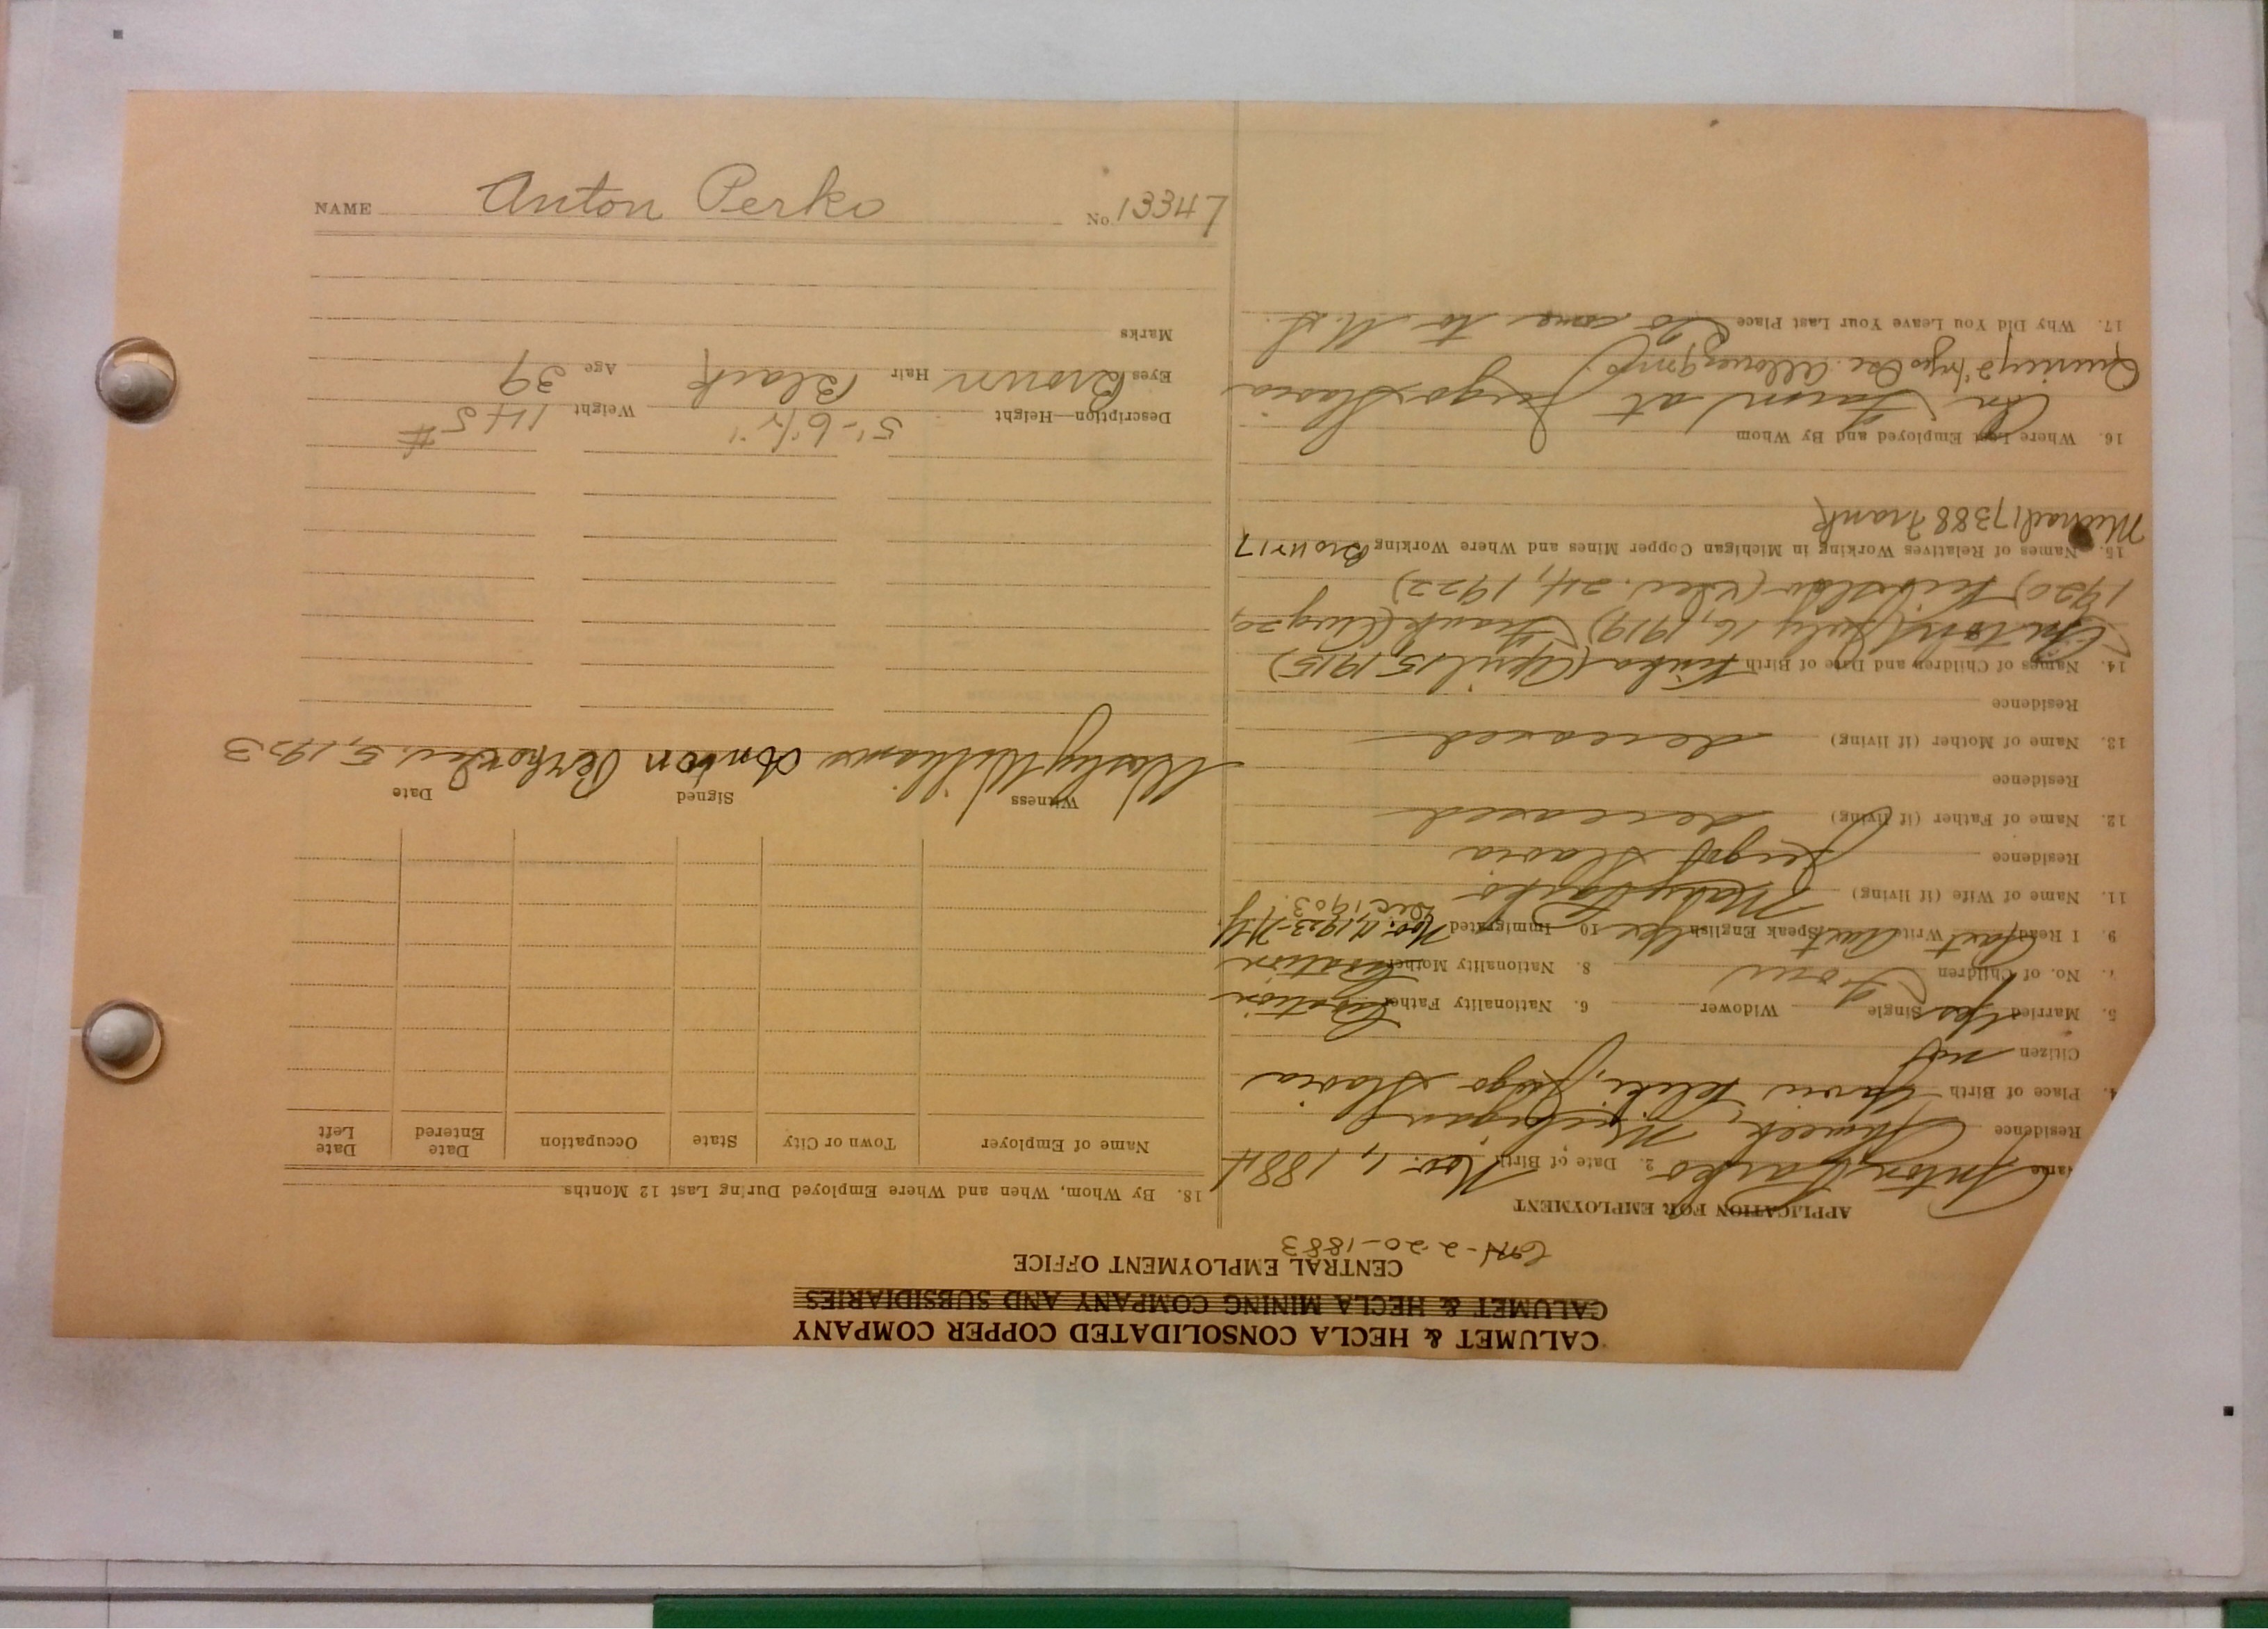 NAME Anton Perko No. 13347
CALUMET & HECLA CONSOLIDATED COPPER COMPANY
CALUMET & HECLA MINING COMPANY AND SUBSIDIARIES
CENTRAL EMPLOYMENT OFFICE
2-20-1883
APPLICATION FOR EMPLOYMENT
Name Anton 2. Date of Birth Nov. 1, 1884
Residence Ahmeek, Michigan
Place of Birth Jugo Slavia
Citizen not
5. Married yes Single Widower 6. Nationality Father Croatian
7. No. of Children Four 8. Nationality Mother Croatian
9. I Read Aust Write Aust Speak English yes 10 Immigrated Nov. 11, 1923-N.Y.
Dec, 1903.
11. Name of Wife (if living) Mary
Residence Jugo Slavia
12. Name of Father (if living) deceased
Residence
13. Name of Mother (if living) deceased
Residence
14. Names of Children and Date of Birth (April 15, 1915)
Anton (July 16, 1919) Frank (Aug 20,
1920) (Dec. 24, 1922)
15. Names of Relatives Working in Michigan Copper Mines and Where Working Bro 11417
Michael 17388 Frank
16. Where Last Employed and By Whom
On Farm at Jugo Slavia
Quincy 2 1/2 yrs Allouez
17. Why Did You Leave Your Last Place To come to U.S.
18. By Whom, When and Where Employed During Last 12 Months
Name of Employer Town or City State Occupation Date Entered Date Left
Witness Signed Date
Williams Anton Perko Dec. 5, 1923
Description—Height 5'-6 1/2" Weight 145 #
Eyes Brown Hair Black Age 39
Marks